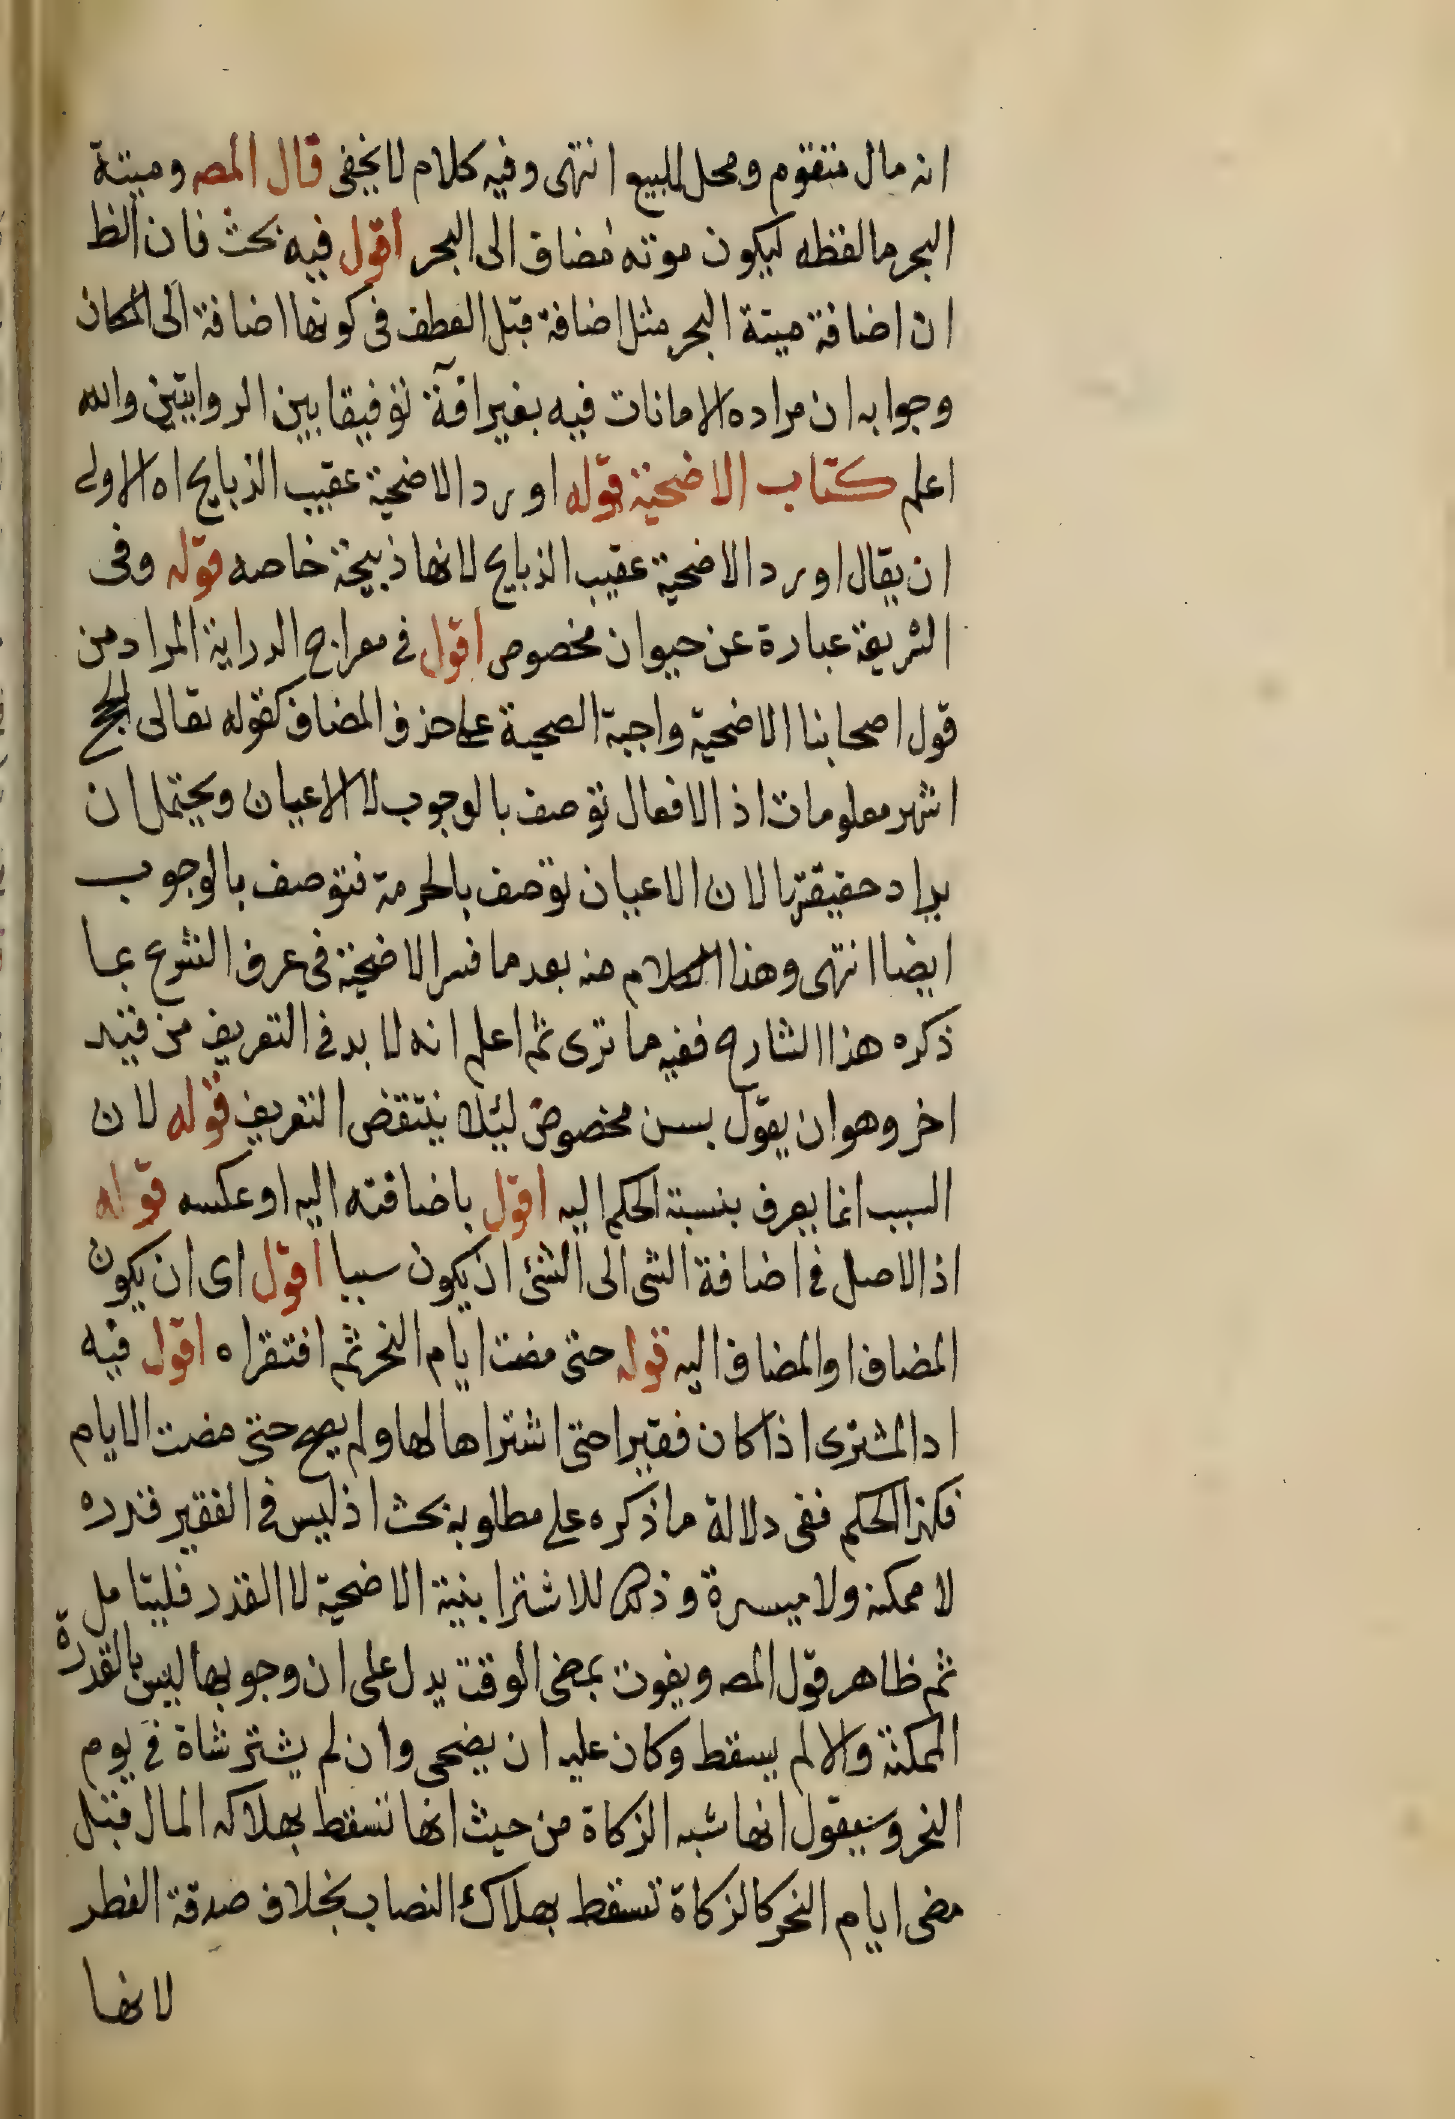 انه مال متقوم ومحل للبيع انتهى وفيه كلام لا يخفى قال المصه وميتة
البحر ما لفظه ليكون موته مضاف الى البحر اقول فيه بحث فان الظ
ان اضافة ميتة البحر مثل اضافة قبل العطف في كونها اضافة الى المكان
وجوابه ان مراده الا مامات فيه بغير افة توفيقا بين الروايتين والله
اعلم كتاب الاضحية قوله اورد الاضحية عقيب الذبايح اه الاولى
ان يقال اورد الاضحية عقيب الذبايح لانها ذبيحة خاصه قوله وفى
الشريعة عبارة عن حيوان مخصوص اقول في معراج الدراية المراد من
قول اصحابنا الاضحية واجبة الضحية على حذف المضاف كقوله تعالى الحج
اشهر معلومات اذ الافعال توصف بالوجوب لا الاعيان ويحتمل ان
يراد حقيقتها لان الاعيان توصف بالحرمة فتوصف بالوجوب
ايضا انتهى وهذا الكلام منه بعد ما فسر الاضحية في عرف الشرع بما
ذكره هذا الشارح ففيه ما ترى ثم اعلم انه لا بد في التعريف من قيد
اخر وهو ان يقول بسن مخصوص ليئلا ينتقض التعريف قوله لان
السبب انما يعرف بنسبة الحكم اليه اقول باضافته اليه او عكسه قوله
اذ الاصل في اضافة الشى الى الشئ ان يكون سببا اقول اى ان يكون
المضاف او المضاف اليه قوله حتى مضت ايام النحر ثم افتقر اه اقول فيه
اد المشترى اذا كان فقيرا حتى اشتراها لها ولم يضح حتى مضت الايام
فكذا الحكم ففى دلالة ما ذكره على مطلوبه بحث اذ ليس في الفقير قدره
لا ممكنة ولا ميسرة وذلك للاشترا بنية الاضحية لا القدر فليتامل
ثم ظاهر قول المصه ويفوت بمضى الوقت يدل على ان وجوبها ليس بالقدرة
الممكنة والا لم يسقط وكان عليه ان يضحى وان لم يشتر شاة في يوم
النحر وسيقول انها شبه الزكاة من حيث انها تسقط بهلاكه المال قبل
مضى ايام النحر كالزكاة تسقط بهلاك النصاب بخلاف صدقة الفطر
لانها